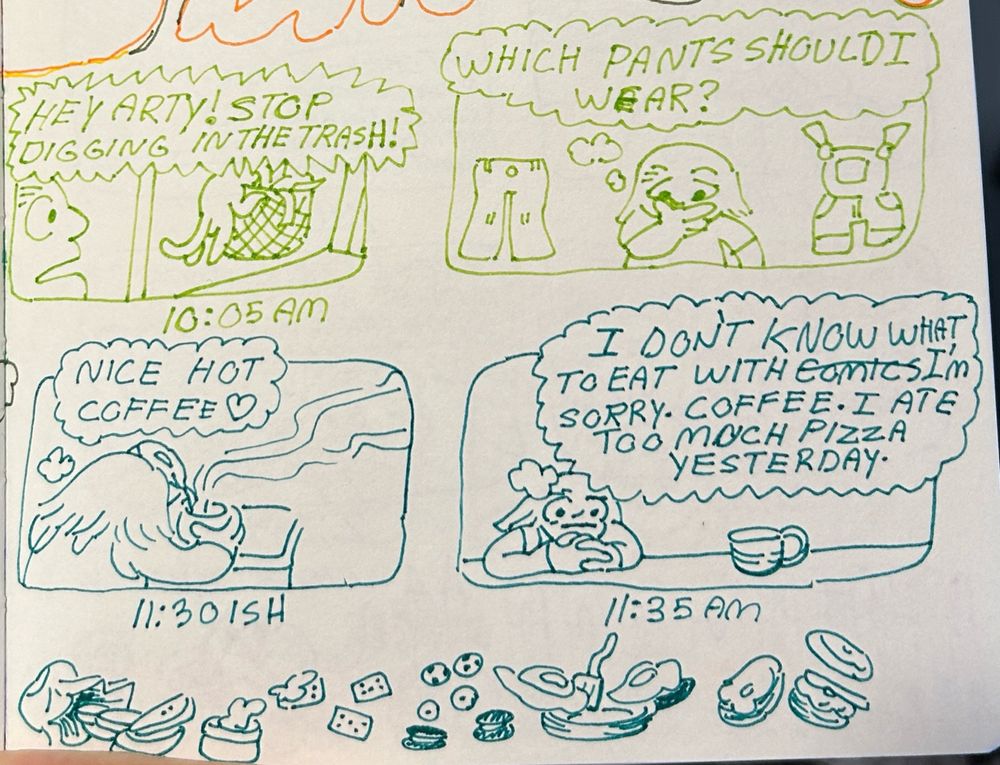 HEY ARTY! STOP
DIGGING IN THE TRASH!
10:05 AM
WHICH PANTS SHOULD I
WEAR?
NICE HOT
COFFEE♡
11:30 ISH
I DON'T KNOW WHAT
TO EAT WITH COMICS I'M
SORRY. COFFEE. I ATE
TOO MUCH PIZZA
YESTERDAY.
11:35 AM